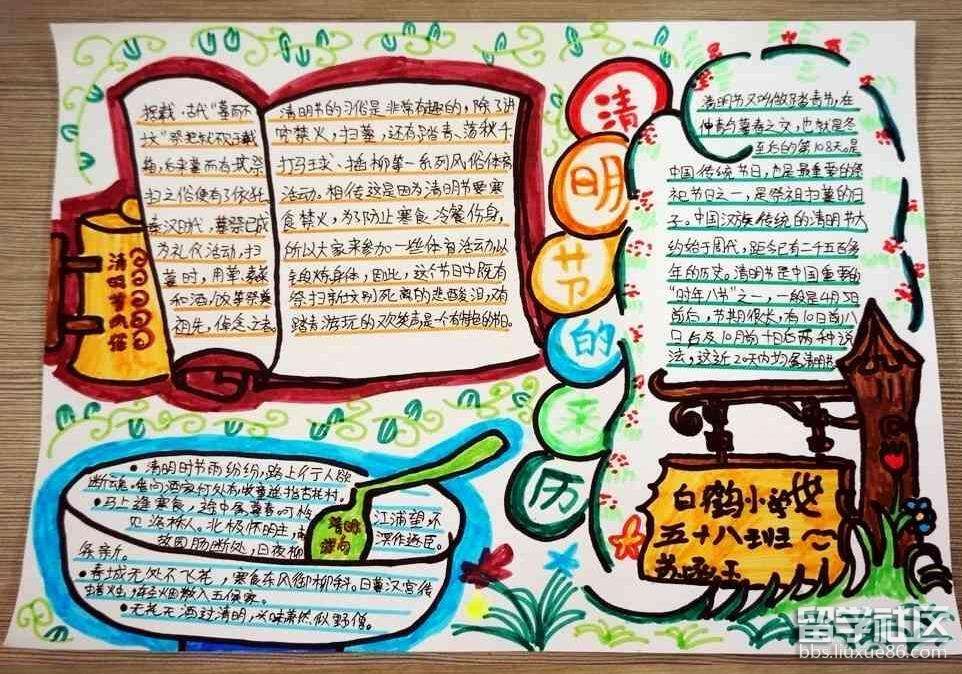 据载,古代"墓而不
坟"祭祀就
后来墓而有
扫之俗便有了依托
秦汉时代,墓祭已成
为礼仪活动,扫
墓时,用
和酒/饭
祖先,
清明节的习俗是非常有趣的,除了讲
究禁火,扫墓,还有踏青、荡秋千、
打马球、插柳等一系列风俗体育
活动。相传这是因为清明节要寒
食禁火,为了防止寒食冷餐伤身,
所以大家来参加一些体育活动以
锻炼身体,因此,这个节日中既有
祭扫新坟别死离的悲酸泪,又有
踏青游玩的欢笑声是一个有特色的节日。
清明节
清明节的来历
清明节又叫做踏青节,在
仲春与暮春之交,也就是冬
至后的第108天。是
中国传统节日,也是最重要的祭
祀节日之一,是祭祖扫墓的日
子。中国汉族传统的清明节大
约始于周代,距今已有二千五百多
年的历史。清明节是中国重要的
"时年八节"之一,一般是4月5日
前后,节期很长,有10日前八
日后及10日前十日后两种说
法,这近20天内均属清明节
·清明时节雨纷纷,路上行人欲
断魂。借问酒家何处有牧童遥指杏花村。
·马上逢寒食,途中属暮春。可怜
江浦望,不
见洛桥人。北极怀明主,南
深作逐臣。
故园肠断处,日夜柳
条新。
·春城无处不飞花,寒食东风御柳斜。日暮汉宫传
蜡烛,轻烟散入五侯家。
·无花无酒过清明,兴味萧然似野僧。
清明
诗句
白鹤小
五十八班
留学社区
bbs.liuxue86.com